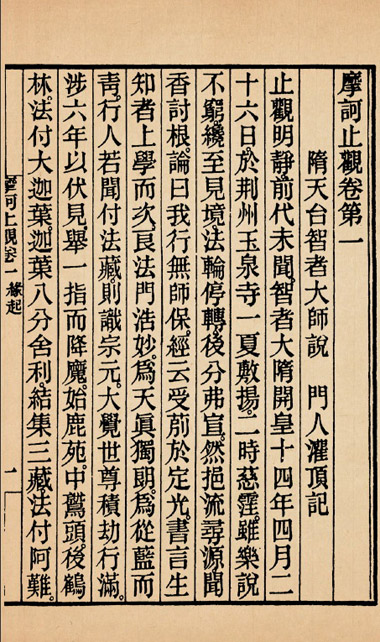 摩訶止觀卷第一
隋天台智者大師說　門人灌頂記
止觀明靜。前代未聞。智者大隋開皇十四年四月二
十六日。於荆州玉泉寺一夏敷揚。二時慈霔。雖樂說
不窮。纔至見境。法輪停轉。後分弗宣。然挹流尋源。聞
香討根。論曰我行無師保。經云受莂於定光。書言生
知者上。學而次良。法門浩妙。爲天眞獨朗。爲從藍而
靑。行人若聞付法藏。則識宗元。大覺世尊積劫行滿。
涉六年以伏見。舉一指而降魔。始鹿苑。中鷲頭。後鶴
林。法付大迦葉。迦葉八分舍利。結集三藏。法付阿難。
摩訶止觀卷一 緣起
一